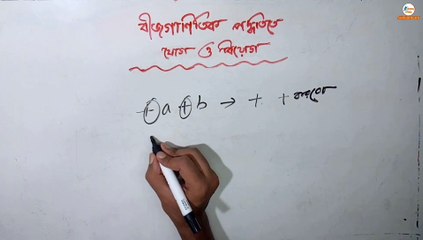 বীজগাণিতিক পদ্ধতিতে
যোগ ও বিয়োগ
+a +b → + +